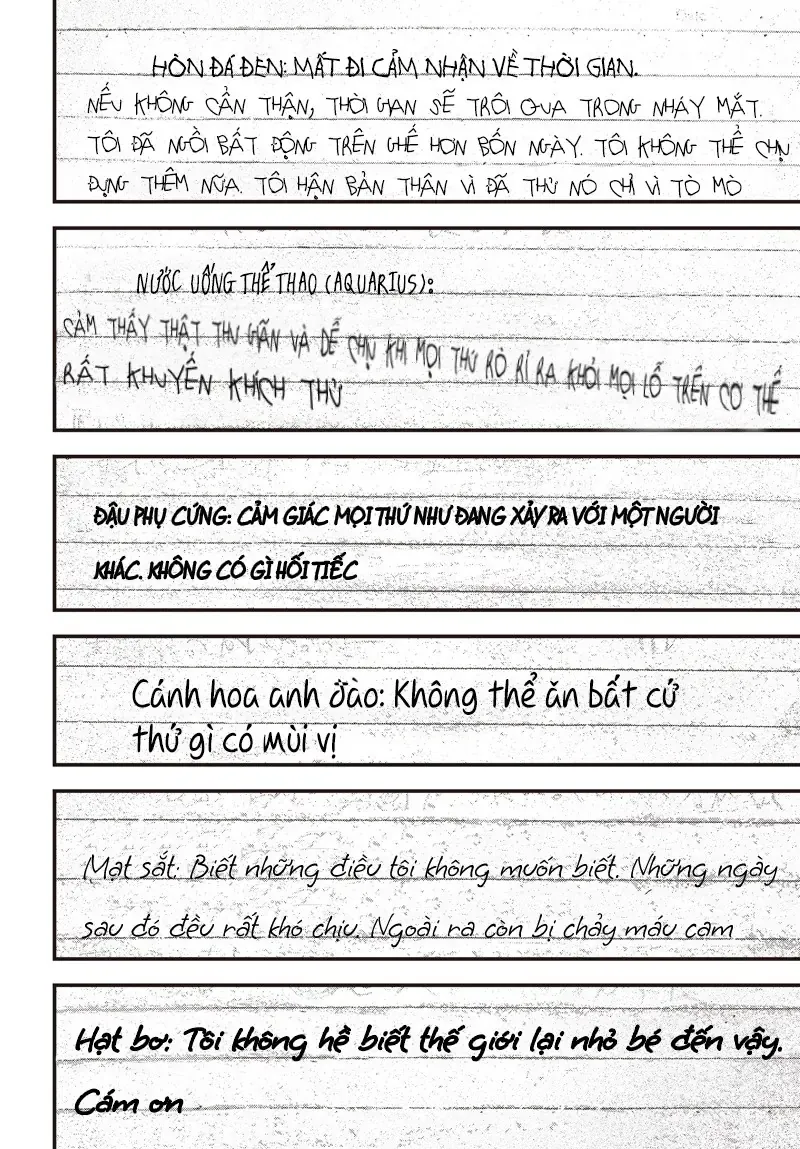 HÒN ĐÁ ĐEN: MẤT ĐI CẢM NHẬN VỀ THỜI GIAN.
NẾU KHÔNG CẨN THẬN, THỜI GIAN SẼ TRÔI QUA TRONG NHÁY MẮT.
TÔI ĐÃ NGỒI BẤT ĐỘNG TRÊN GHẾ HƠN BỐN NGÀY. TÔI KHÔNG THỂ CHỊU
ĐỰNG THÊM NỮA. TÔI HẬN BẢN THÂN VÌ ĐÃ THỬ NÓ CHỈ VÌ TÒ MÒ
NƯỚC UỐNG THỂ THAO (AQUARIUS):
CẢM THẤY THẬT THƯ GIÃN VÀ DỄ CHỊU KHI MỌI THỨ RÒ RỈ RA KHỎI MỌI LỖ TRÊN CƠ THỂ
RẤT KHUYẾN KHÍCH THỬ
ĐẬU PHỤ CỨNG: CẢM GIÁC MỌI THỨ NHƯ ĐANG XẢY RA VỚI MỘT NGƯỜI
KHÁC. KHÔNG CÓ GÌ HỐI TIẾC
Cánh hoa anh đào: Không thể ăn bất cứ
thứ gì có mùi vị
Mạt sắt: Biết những điều tôi không muốn biết. Những ngày
sau đó đều rất khó chịu. Ngoài ra còn bị chảy máu cam
Hạt bơ: Tôi không hề biết thế giới lại nhỏ bé đến vậy.
Cám ơn